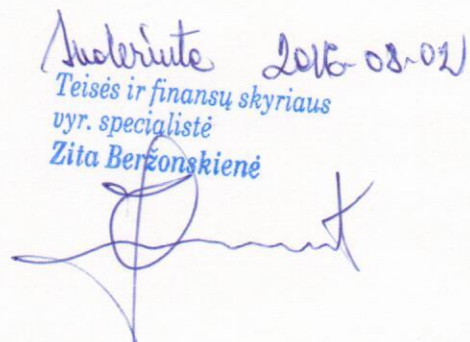 Suderinta 2016-08-02
Teisės ir finansų skyriaus
vyr. specialistė
Zita Beržonskienė